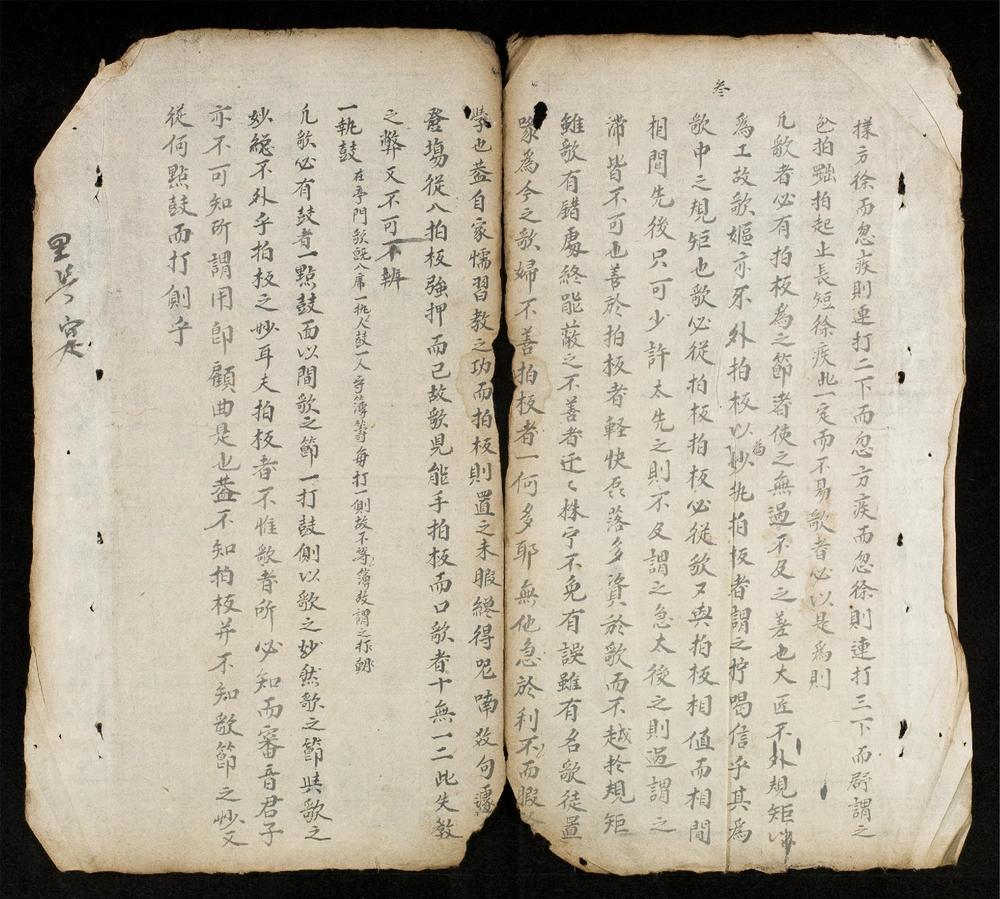 叁
樣方徐而忽疾則連打二下而忽方疾而忽徐則連打三下而 謂之
拍 拍起止長短徐疾此一定而不易歌者必以是爲則
凡歌者必有拍板爲之節者使之無過不及之差也大匠不外規矩以
爲工故歌嫗亦不外拍板以爲妙执拍板者謂之控喝信乎其爲
歌中之規矩也歌必從拍板拍板必從歌又與拍板相值而相間
相間先後只可少許太先之則不及謂之急太後之則過謂之
滯皆不可也善於拍板者軽快磊落多資於歌而不越於規矩
雖歌有錯處終能蔽之不善者迂々株守不免有誤雖有名歌徒置
爲今之歌婦不善拍板者一何多耶無他急於利而不暇
學也盖自家懦習教之功而拍板則置之未暇纔得呢喃数句
登塲從入拍板強押而已故歌児能手拍板而口歌者十無一二此失教
之弊又不可不辨
一執鼓 在亭門歌既入席一执人鼓一人守簿籌每打一側故不等簿故謂之打
凡歌必有鼓者一點鼓而以間歌之節一打鼓側以歌之妙然歌之節與歌之
妙總不外乎拍板之妙耳夫拍板者不惟歌者所必知而審音君子
亦不可知所謂用郎顧曲是也盖不知拍板并不知歌節之妙又
從何點鼓而打側乎